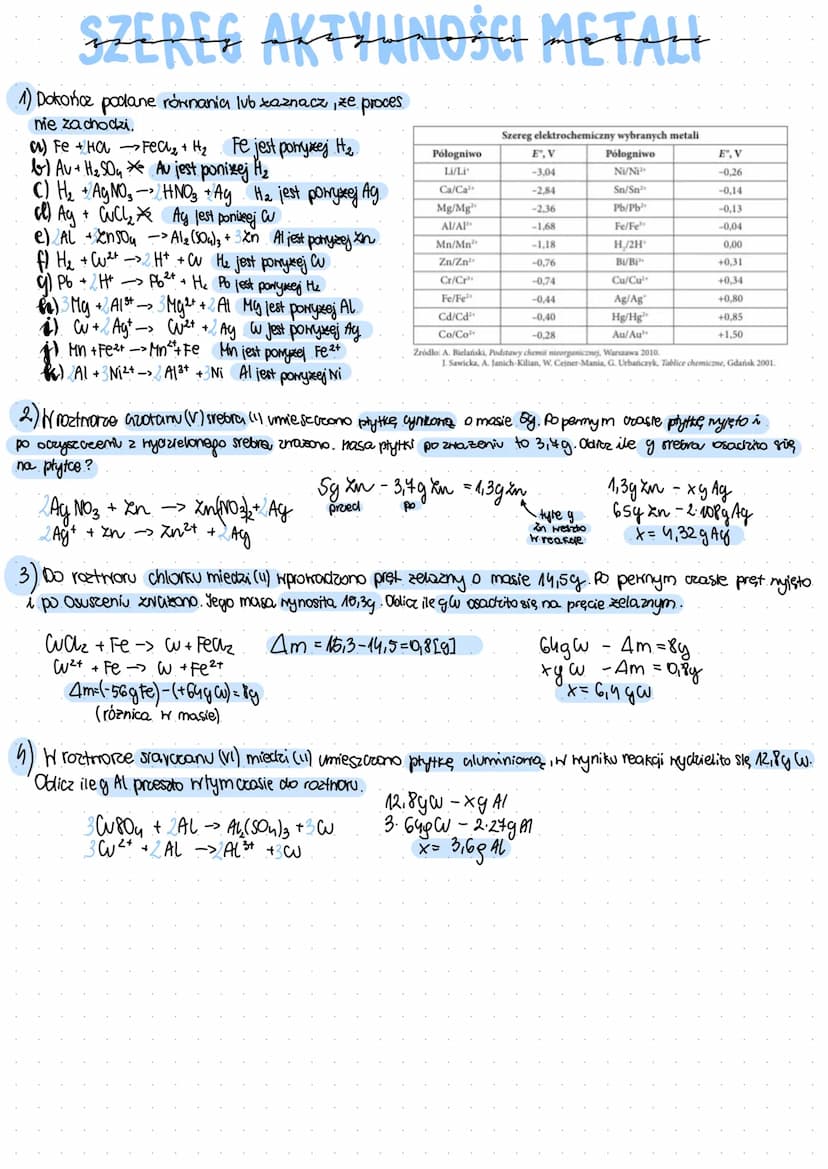 SZEREG AKTYWNOŚCI METALI
szereg aktywności metali
1) Dokończ podane równania lub zaznacz, że proces
nie zachodzi.
a) Fe + 2HCl → FeCl₂ + H₂ Fe jest powyżej H₂
b) Au + H₂SO₄ ↛ Au jest poniżej H₂
c) H₂ + 2AgNO₃ → 2HNO₃ + 2Ag H₂ jest powyżej Ag
d) Ag + CuCl₂ ↛ Ag jest poniżej Cu
e) 2Al + 3ZnSO₄ → Al₂(SO₄)₃ + 3Zn Al jest powyżej Zn
f) H₂ + Cu²⁺ → 2H⁺ + Cu H₂ jest powyżej Cu
g) Pb + 2H⁺ → Pb²⁺ + H₂ Pb jest powyżej H₂
h) 3Mg + 2Al³⁺ → 3Mg²⁺ + 2Al Mg jest powyżej Al
i) Cu + 2Ag⁺ → Cu²⁺ + 2Ag Cu jest powyżej Ag
j) Mn + Fe²⁺ → Mn²⁺ + Fe Mn jest powyżej Fe²⁺
k) 2Al + 3Ni²⁺ → 2Al³⁺ + 3Ni Al jest powyżej Ni
Szereg elektrochemiczny wybranych metali
Półogniwo E°, V Półogniwo E°, V
Li/Li⁺ -3,04 Ni/Ni²⁺ -0,26
Ca/Ca²⁺ -2,84 Sn/Sn²⁺ -0,14
Mg/Mg²⁺ -2,36 Pb/Pb²⁺ -0,13
Al/Al³⁺ -1,68 Fe/Fe³⁺ -0,04
Mn/Mn²⁺ -1,18 H₂/2H⁺ 0,00
Zn/Zn²⁺ -0,76 Bi/Bi³⁺ +0,31
Cr/Cr³⁺ -0,74 Cu/Cu²⁺ +0,34
Fe/Fe²⁺ -0,44 Ag/Ag⁺ +0,80
Cd/Cd²⁺ -0,40 Hg/Hg²⁺ +0,85
Co/Co²⁺ -0,28 Au/Au³⁺ +1,50
Źródło: A. Bielański, Podstawy chemii nieorganicznej, Warszawa 2010.
J. Sawicka, A. Janich-Kilian, W. Cejner-Mania, G. Urbańczyk, Tablice chemiczne, Gdańsk 2001.
2) W roztworze azotanu (V) srebra (I) umieszczono płytkę cynkową o masie 5g. Po pewnym czasie płytkę wyjęto i
po oczyszczeniu z wydzielonego srebra, zważono. Masa płytki po zważeniu to 3,7g. Oblicz ile g srebra osadziło się
na płytce?
2AgNO₃ + Zn → Zn(NO₃)₂ + 2Ag
2Ag⁺ + Zn → Zn²⁺ + 2Ag
5g Zn - 3,7g Zn = 1,3g Zn
przed po
tyle g
Zn weszło
w reakcję
1,3g Zn - x g Ag
65g Zn - 2·108g Ag
x = 4,32 g Ag
3) Do roztworu chlorku miedzi (II) wprowadzono pręt żelazny o masie 14,5g. Po pewnym czasie pręt wyjęto
i po osuszeniu zważono. Jego masa wynosiła 15,3g. Oblicz ile g Cu osadziło się na pręcie żelaznym.
CuCl₂ + Fe → Cu + FeCl₂
Cu²⁺ + Fe → Cu + Fe²⁺
Δm=(-56g Fe)-(+64g Cu)=8g
(różnica w masie)
Δm = 15,3-14,5=0,8[g]
64g Cu - Δm = 8g
x g Cu - Δm = 0,8g
x = 6,4 g Cu
4) W roztworze siarczanu (VI) miedzi (II) umieszczono płytkę aluminiową, w wyniku reakcji wydzieliło się 12,8g Cu.
Oblicz ile g Al przeszło w tym czasie do roztworu.
3CuSO₄ + 2Al → Al₂(SO₄)₃ + 3Cu
3Cu²⁺ + 2Al → 2Al³⁺ + 3Cu
12,8g Cu - x g Al
3·64g Cu - 2·27g Al
x = 3,6g Al